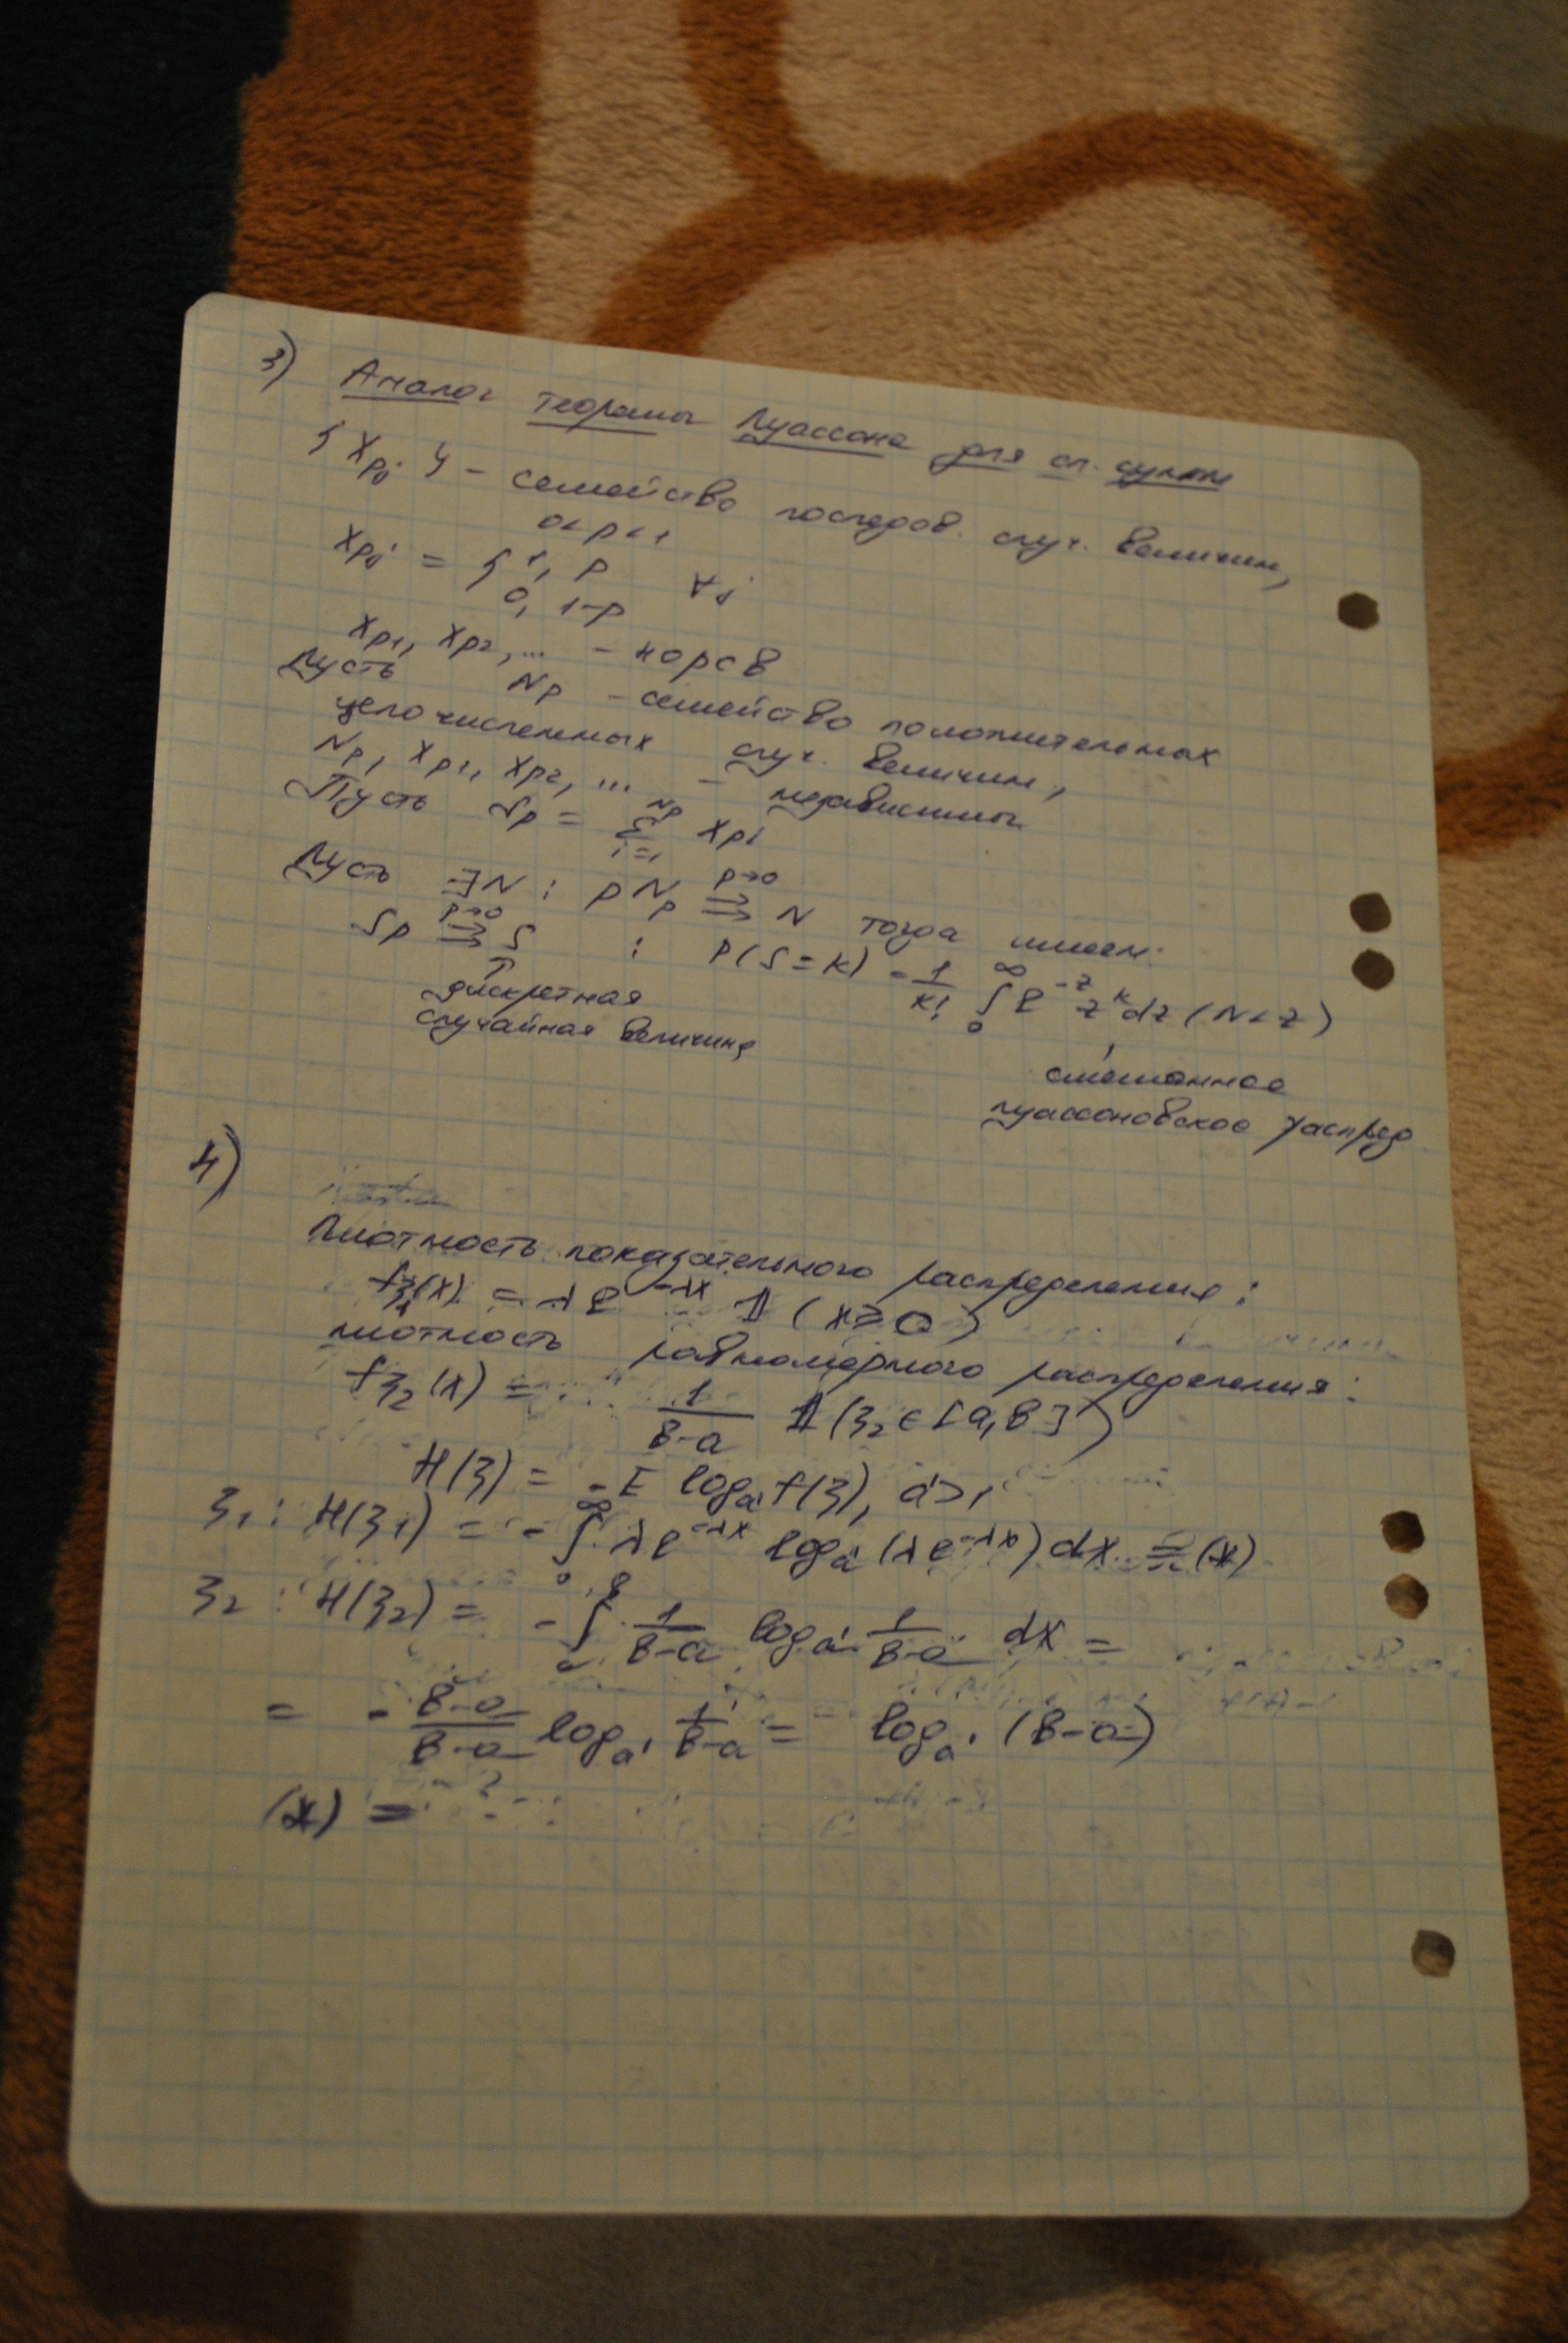 3) Аналог теоремы Пуассона для сл. сумм
{X_{pj}} - семейство последов. случ. величин,
0<p<1
X_{pj} = { 1, p ∀j
0, 1-p
X_{p1}, X_{p2}, ... - норсв
Пусть N_p - семейство положительных
целочисленных случ. величин,
N_p, X_{p1}, X_{p2}, ... - независимы
Пусть S_p = \sum_{i=1}^{N_p} X_{pi}
Пусть ∃N : pN_p \overset{p→0}{⇒} N тогда имеем:
S_p \overset{p→0}{⇒} S : P(S=k) = \frac{1}{k!} \int_0^∞ e^{-z} z^k dz(N<z)
↑
дискретная
случайная величина
смешанное
пуассоновское распред
4)
Плотность показательного распределения:
f_{ξ_1}(x) = λe^{-λx} 𝟙(x≥0)
плотность равномерного распределения:
f_{ξ_2}(x) = \frac{1}{B-a} 𝟙(ξ_2∈[a,B])
H(ξ) = -E log_{a'} f(ξ), a'>1
ξ_1: H(ξ_1) = -\int_0^∞ λe^{-λx} log_{a'}(λe^{-λx})dx = (*)
ξ_2: H(ξ_2) = -\int_a^B \frac{1}{B-a} log_{a'} \frac{1}{B-a} dx =
= -\frac{B-a}{B-a} log_{a'} \frac{1}{B-a} = log_{a'}(B-a)
(*) =